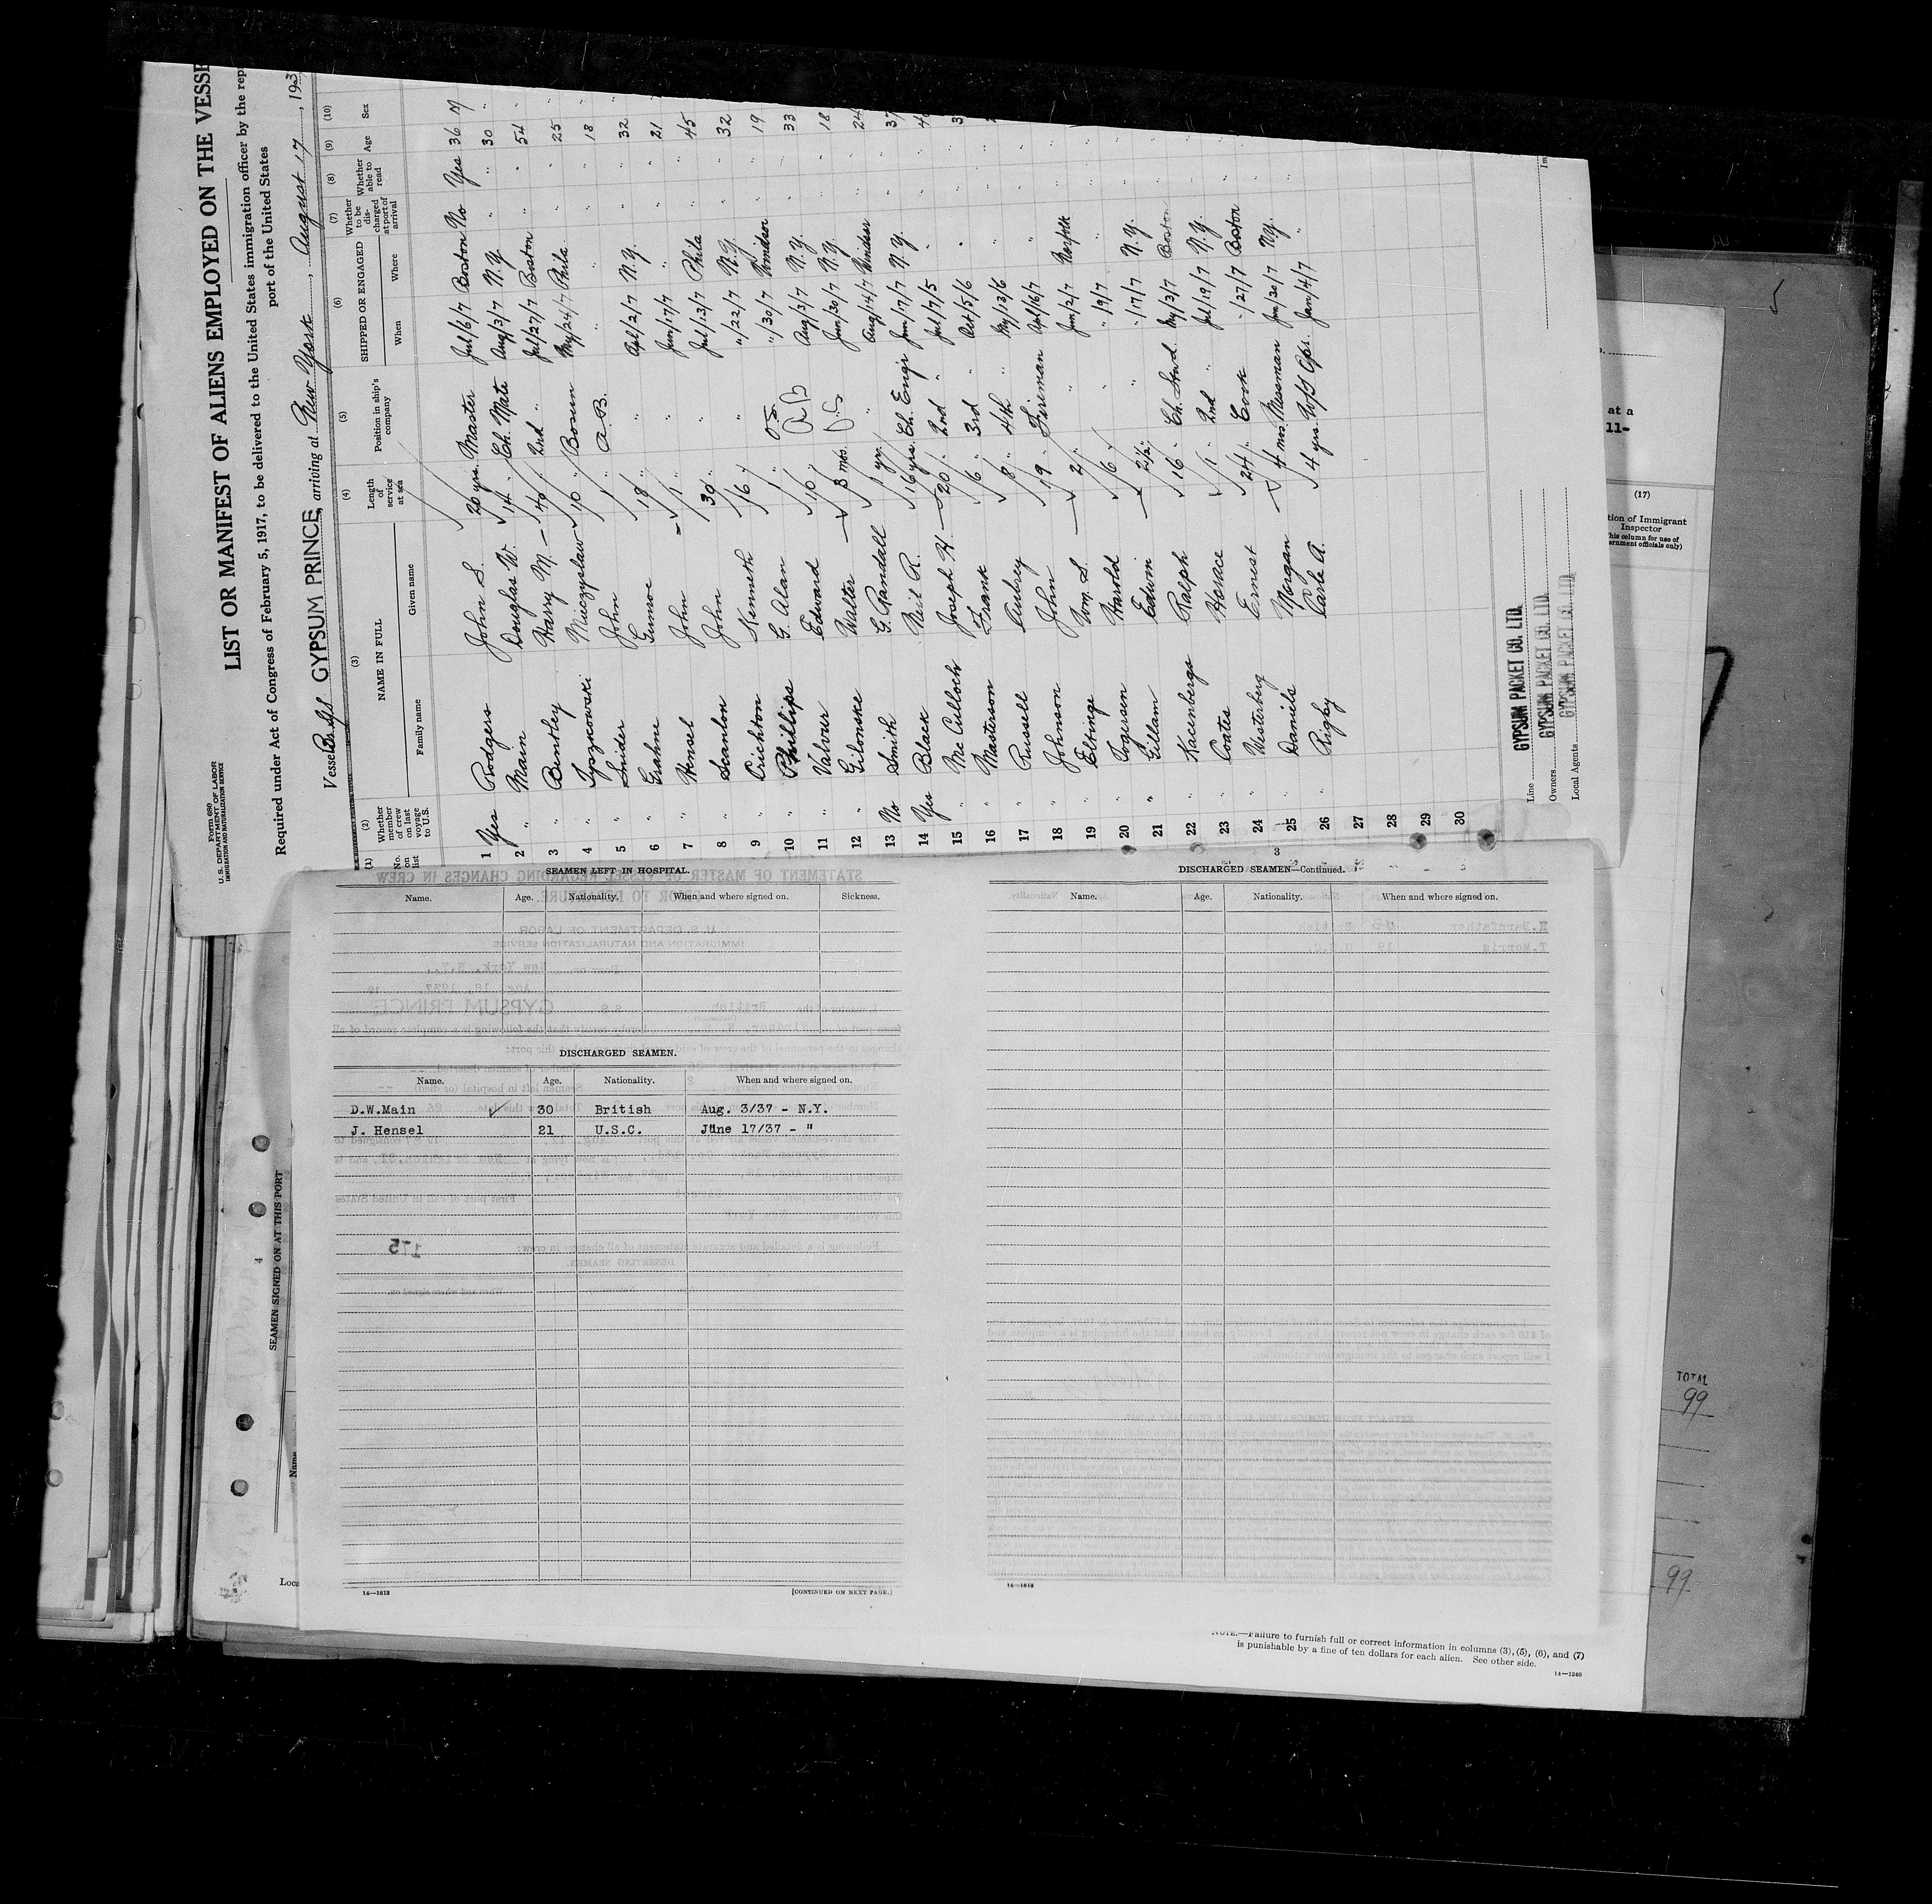 Form 680
U. S. DEPARTMENT OF LABOR
IMMIGRATION AND NATURALIZATION SERVICE
LIST OR MANIFEST OF ALIENS EMPLOYED ON THE VESSE
Required under Act of Congress of February 5, 1917, to be delivered to the United States immigration officer by the rep
port of the United States
Vessel Br. S/S GYPSUM PRINCE, arriving at New York, August 17, 193
(1) (2) (3) (4) (5) (6) (7) (8) (9) (10)
No. on list
Whether member of crew on last voyage to U.S.
NAME IN FULL
Family name Given name
Length of service at sea
Position in ship's company
SHIPPED OR ENGAGED
When Where
Whether to be discharged at port of arrival
Whether able to read
Age Sex
1 Yes Rodgers John S. 20 yrs. Master Jul/6/7 Boston No Yes 36 M
2 " Main Douglas W. 14 " Ch. Mate Aug/3/7 N.Y. " " 30 "
3 " Bentley Harry M. 40 " 2nd " Jul/27/7 Boston " " 54 "
4 " Mieczyslaw 10 " Bosun My/24/7 Phila " " 25 "
5 " Snider John 1 " A.B. " " " " 18 "
6 " Grahne Gunnoe 18 " " Apl/2/7 N.Y. " " 32 "
7 " Hensel John 1 " " Jun/17/7 " " " 21
8 " Scanlon John 30 " " Jul/13/7 Phila " " 45
9 " Crichton Kenneth 16 " " "/22/7 N.Y. " " 32
10 " Phillips G. Alan 1 " O.S. "/30/7 Windsor " " 19
11 " Valour Edward 10 " AB Aug/3/7 N.Y. " " 33
12 " Giloske Walter 3 mos. O.S. Jun/30/7 N.Y. " " 18
13 No Smith G. Randall 1 yr. " Aug/14/7 Windsor " " 24
14 Yes Black Neil R. 16 yrs. Ch. Engr Jun/17/7 N.Y. " " 37
15 " McCulloch Joseph H. 20 " 2nd " Jul/7/5 "
16 " Masterson Frank 6 " 3rd " Oct/5/6 "
17 " Russell Aubrey 8 " 4th " My/13/6 "
18 " Johnson John 19 " Fireman Apl/6/7 "
19 " Eltinge Wm. S. 2 " " Jun/2/7 Norfolk
20 " Togersen Harold 6 " " "/9/7 "
21 " Gillam Edwin 2½ " " "/17/7 N.Y.
22 " Kacenbergs Ralph 16 " Ch. Stwd. My/3/7 Boston
23 " Coates Horace 1 " 2nd " Jul/19/7 N.Y.
24 " Westerberg Ernest 24 " Cook "/27/7 Boston
25 " Daniels Morgan 4 mos. Messman Jun/30/7 N.Y.
26 " Rigby Carle A. 4 yrs. Jan/4/7 "
27
28
29
30
Line GYPSUM PACKET CO. LTD.
Owners GYPSUM PACKET CO. LTD.
Local Agents GYPSUM PACKET CO. LTD.
SEAMEN LEFT IN HOSPITAL.
Name. Age. Nationality. When and where signed on. Sickness.
DISCHARGED SEAMEN.
Name. Age. Nationality. When and where signed on.
D.W.Main 30 British Aug. 3/37 - N.Y.
J. Hensel 21 U.S.C. June 17/37 - "
175
14—1613
[CONTINUED ON NEXT PAGE.]
3
DISCHARGED SEAMEN—Continued.
Name. Age. Nationality. When and where signed on.
14—1613
4
SEAMEN SIGNED ON AT THIS PORT
Name
at a
11-
(17)
tion of Immigrant
Inspector
his column for use of
ernment officials only)
TOTAL
99
99
NOTE.—Failure to furnish full or correct information in columns (3), (5), (6), and (7)
is punishable by a fine of ten dollars for each alien. See other side.
14—1240